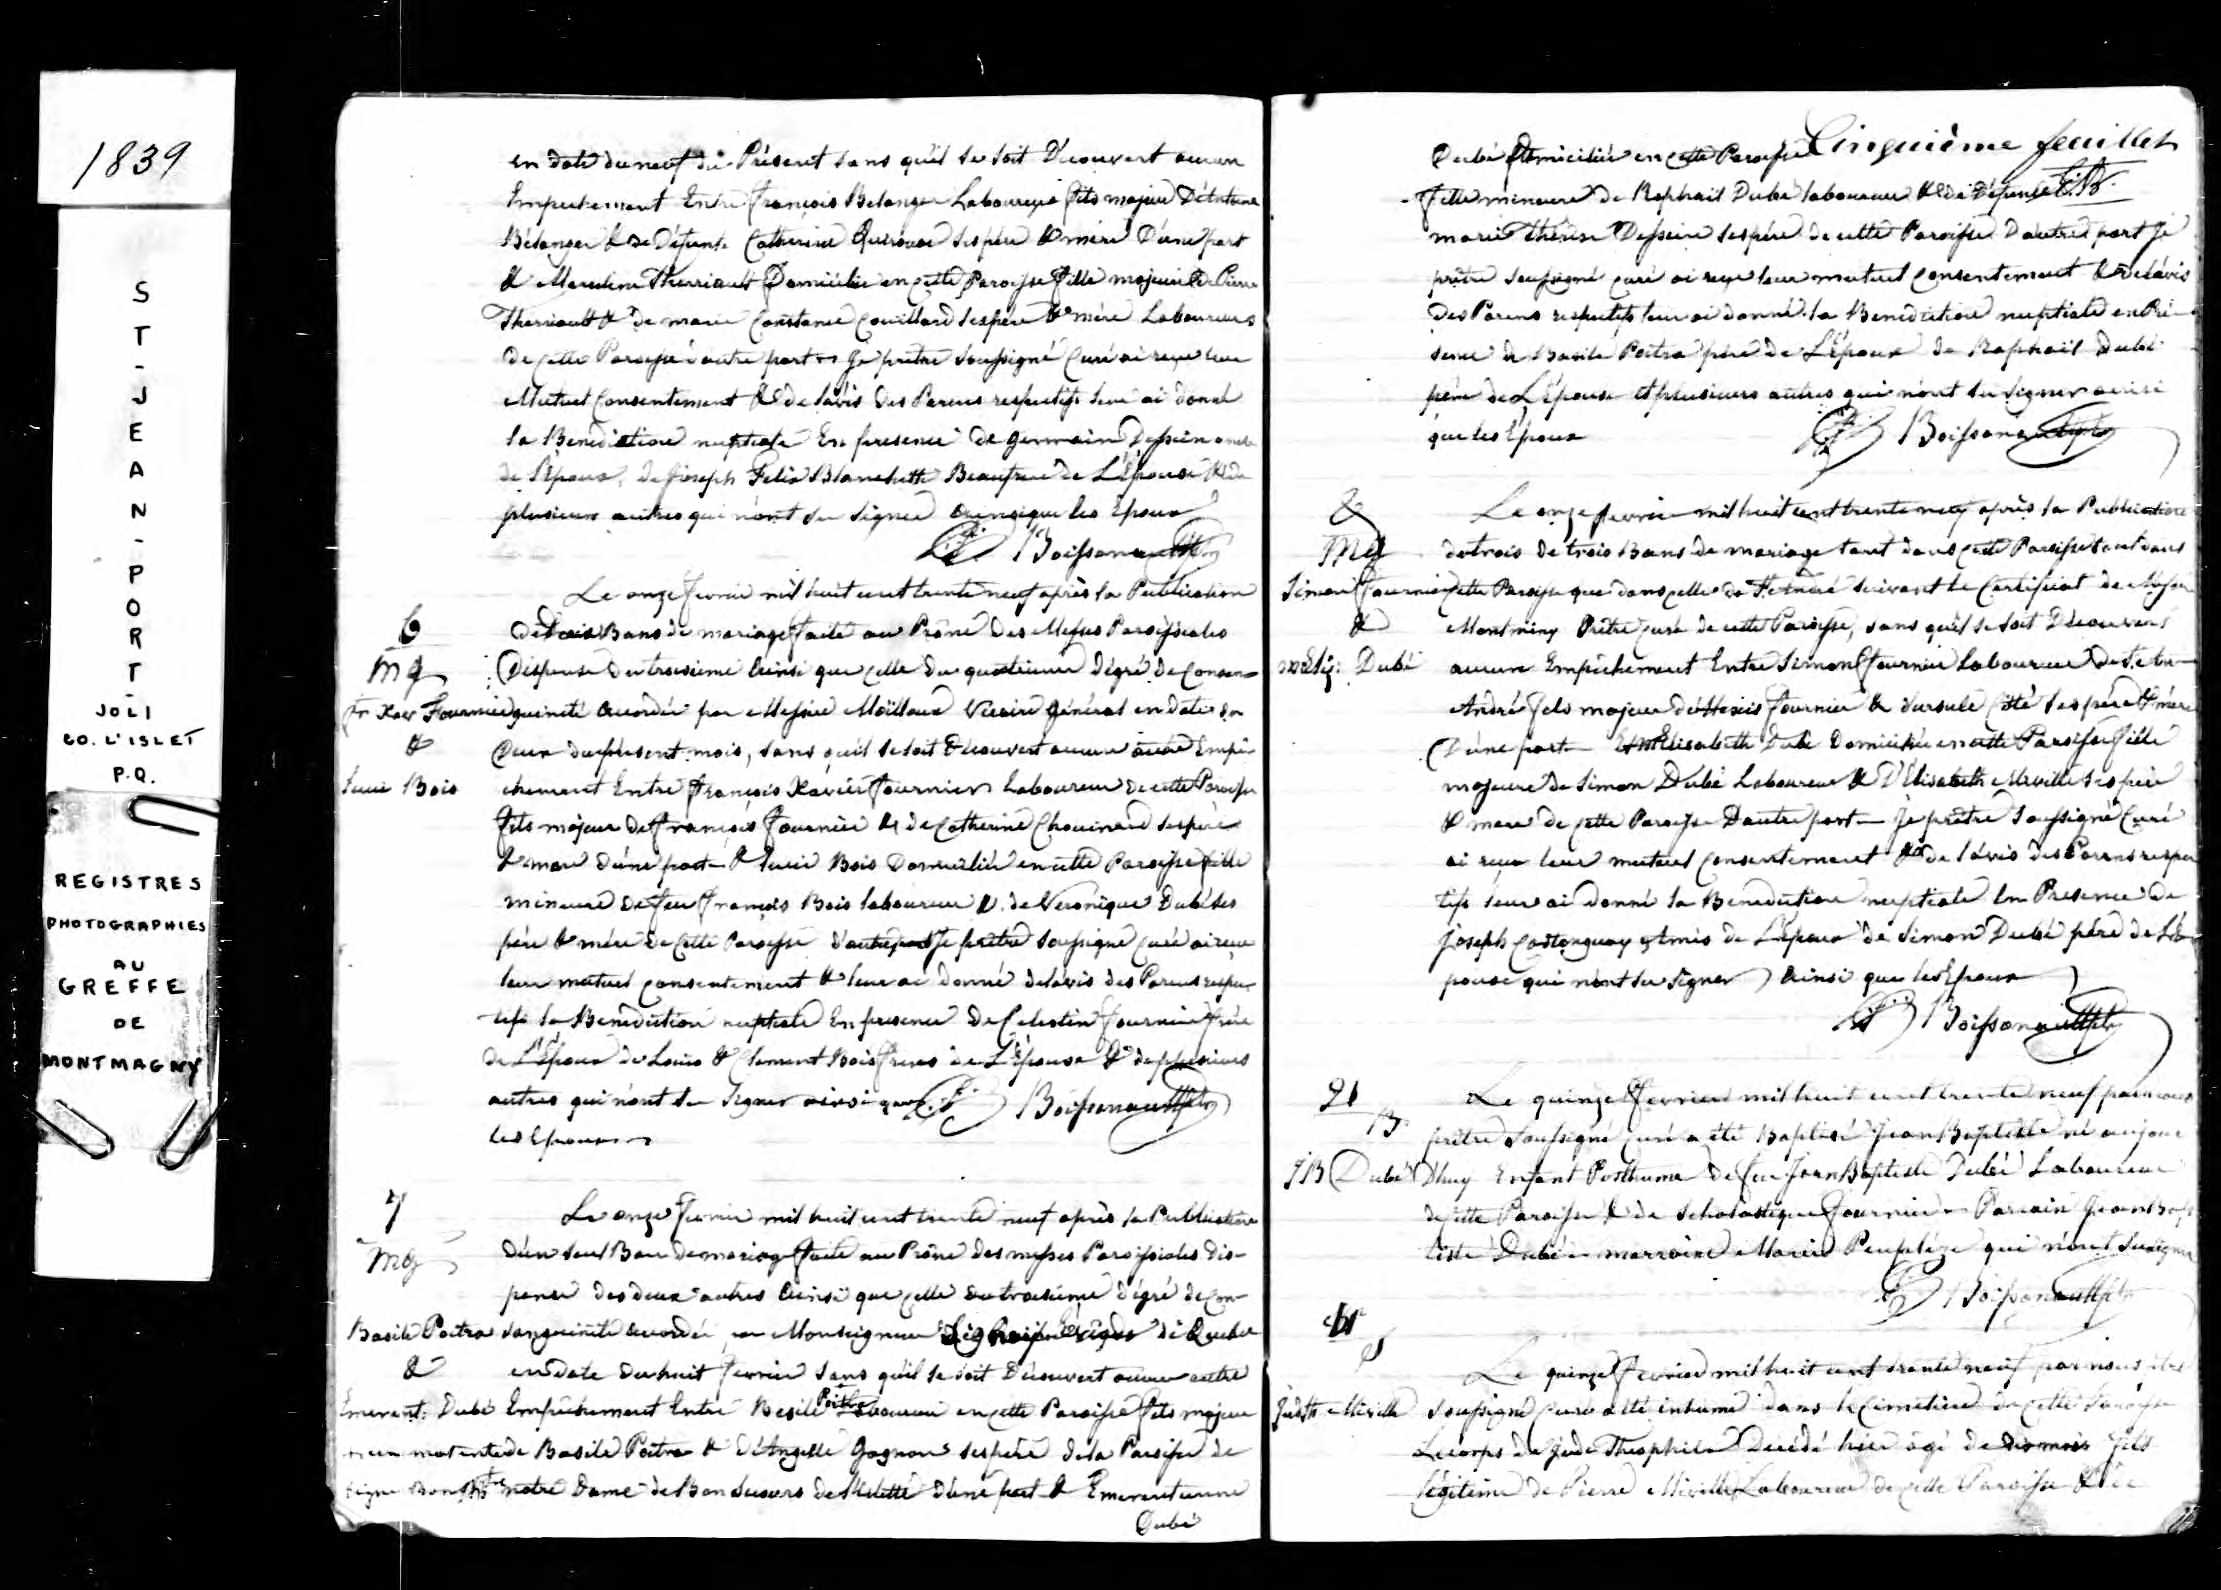 1839
ST-JEAN-PORT-
JOLI
CO. L'ISLET
P.Q.
REGISTRES
PHOTOGRAPHIES
AU
GREFFE
DE
MONTMAGNY
en date du neuf du Présent sans qu'il se soit Découvert aucun
Empechement Entre françois Belanger Laboureur fils majeur D'Antoine
Bélanger & de Défunte Catherine ses père & mère D'une part
& Marceline Therriault Domiciliée en cette Paroisse fille majeure de Pierre
Therriault & de marie Constance Couillard ses père & mère Laboureurs
de cette Paroisse d'autre part Je prêtre Soussigné Curé ai reçu leur
Mutuel Consentement & de l'avis des Parens respectifs leur ai donné
la Benediction nuptiale En presence de germain Dessein oncle
de l'Epoux, de Joseph Felix Blanchette Beaufrere de L'Epouse & de
plusieurs autres qui n'ont su signer ainsi que les Epoux
Boissonnault ptre
6
Mg
Fr Xavr Fournier
&
Lucie Bois
Le onze fevrier mil huit cent trente neuf après la Publication
de trois Bans de mariage faite au Prône des Messes Paroissiales
Dispense du troisieme ainsi que celle du quatrieme dégré de Consan-
guinité accordée par Messire Mailloux Vicaire Général en date du
Deux du présent mois, sans qu'il se soit découvert aucun autre Empê-
chement Entre françois Xavier fournier Laboureur de cette Paroisse
fils majeur de françois fournier & de Catherine Chouinard ses père
& mere d'une part & Lucie Bois Domiciliée en cette Paroisse fille
mineure de feu françois Bois laboureur & de Veronique Dubé ses
père & mère de cette Paroisse d'autre part Je prêtre soussigné curé ai reçu
leur mutuel consentement & leur ai donné de l'avis des Parens respec-
tifs la Benediction nuptiale En presence de Celestin fournier frère
de L'Epoux de Louis & Clement Bois freres de L'Epouse & de plusieurs
autres qui n'ont su signer ainsi que Boissonnault ptre
les Epoux
7
Mg
Basile Poitra
&
Emerent. Dubé
Le onze fevrier mil huit cent trente neuf après la Publication
d'un seul Ban de mariage faite au Prône des messes Paroissiales dis-
pense des deux autres ainsi que celle du troisieme dégré de con-
sanguinité accordée par Monseigneur de Quebec
en date du huit fevrier sans qu'il se soit Découvert aucun autre
Empêchement Entre Basile Poitra Laboureur en cette Paroisse fils majeur
de Basile Poitra & d'Angelle Gagnon ses père de la Paroisse de
notre Dame de Bon Secours de d'une part & Emerentienne
Dubé
Cinquième feuillet
Dubé domiciliée en cette Paroisse
fille mineure de Raphail Dubé laboureur & de défunte
marie thérèse Dessein ses père de cette Paroisse D'autre part Je
prêtre soussigné curé ai reçu leur mutuel consentement & de l'avis
des Parens respectifs leur ai donné la Benediction nuptiale en Pré-
sence de Basile Poitra père de L'Epoux de Raphaïl Dubé
père de L'Epouse et plusieurs autres qui n'ont su signer ainsi
que les Epoux Boissonnault ptre
8
Mg
Simon Fournier
&
Dubé
Le onze fevrier mil huit cent trente neuf après la Publication
de trois de trois Bans de mariage tant dans cette Paroisse tant dans
cette Paroisse que dans celle de St André suivant le Certificat de Messire
Montminy Prêtre curé de cette Paroisse, sans qu'il se soit Découvert
aucun Empêchement Entre Simon fournier Laboureur de St
André fils majeur d'Alexis fournier & d'ursule Côté ses père & mère
D'une part Elisabeth Dubé Domiciliée en cette Paroisse fille
majeure de Simon Dubé Laboureur & D'Elisabeth Miville ses père
& mere de cette Paroisse D'autre part Je prêtre Soussigné Curé
ai reçu leur mutuel consentement & de l'avis des Parens respec-
tifs leur ai donné la Benediction nuptiale En Presence de
Joseph Castonguay Amis de L'Epoux de Simon Dubé père de L'é-
pouse qui n'ont su signer ainsi que les Epoux
Boissonnault ptre
21
B
JB Dubé
Le quinze fevrier mil huit cent trente neuf par nous
prêtre Soussigné curé a été baptisé Jean Baptiste né aujour
D'huy Enfant Posthume de feu Jean Baptiste Dubé Laboureur
de cette Paroisse & de Scholastique fournier Parrain Jean Bap
tiste Dubé marraine Marie qui n'ont su signer
Boissonnault ptre
S
Miville
Le quinze fevrier mil huit cent trente neuf par nous ptre
soussigné curé a été inhumé dans le Cimetiere de cette Paroisse
Le corps de Jude Theophile Décédé hier âgé de dix mois fils
légitime de Pierre Miville Laboureur de cette Paroisse & de